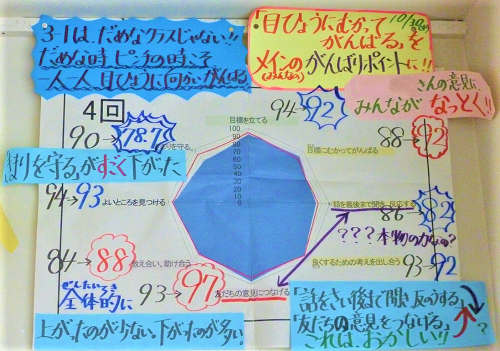 3-1は、だめなクラスじゃない!!
だめな時、ピンチの時こそ
一人一人目ひょうに向かいがんばる
！目ひょうにむかって
10/30
がんばる」を
メインの
がんばりポイントに!!
さんの意見に
みんなが なっとく!!
4回
目標を立てる
94→92
90→78.7
を守る
88→92
目標にむかってがんばる
まりを守る」がすごく下がった
100
90
80
70
60
50
40
30
20
10
0
94→93
よいところを見つける
話を最後まで聞き、反応する
86→82
???本物の力なの?
84→88
教え合い、助け合う
良くするための考えを出し合う
93→92
ぜんたいてき
全体的に
93→97
友だちの意見につなげる
上がったのが少ない、下がったのが多い。
「話をさい後まで聞き反のうする」
「友だちの意見をつなげる」
?
これは、おかしい!!